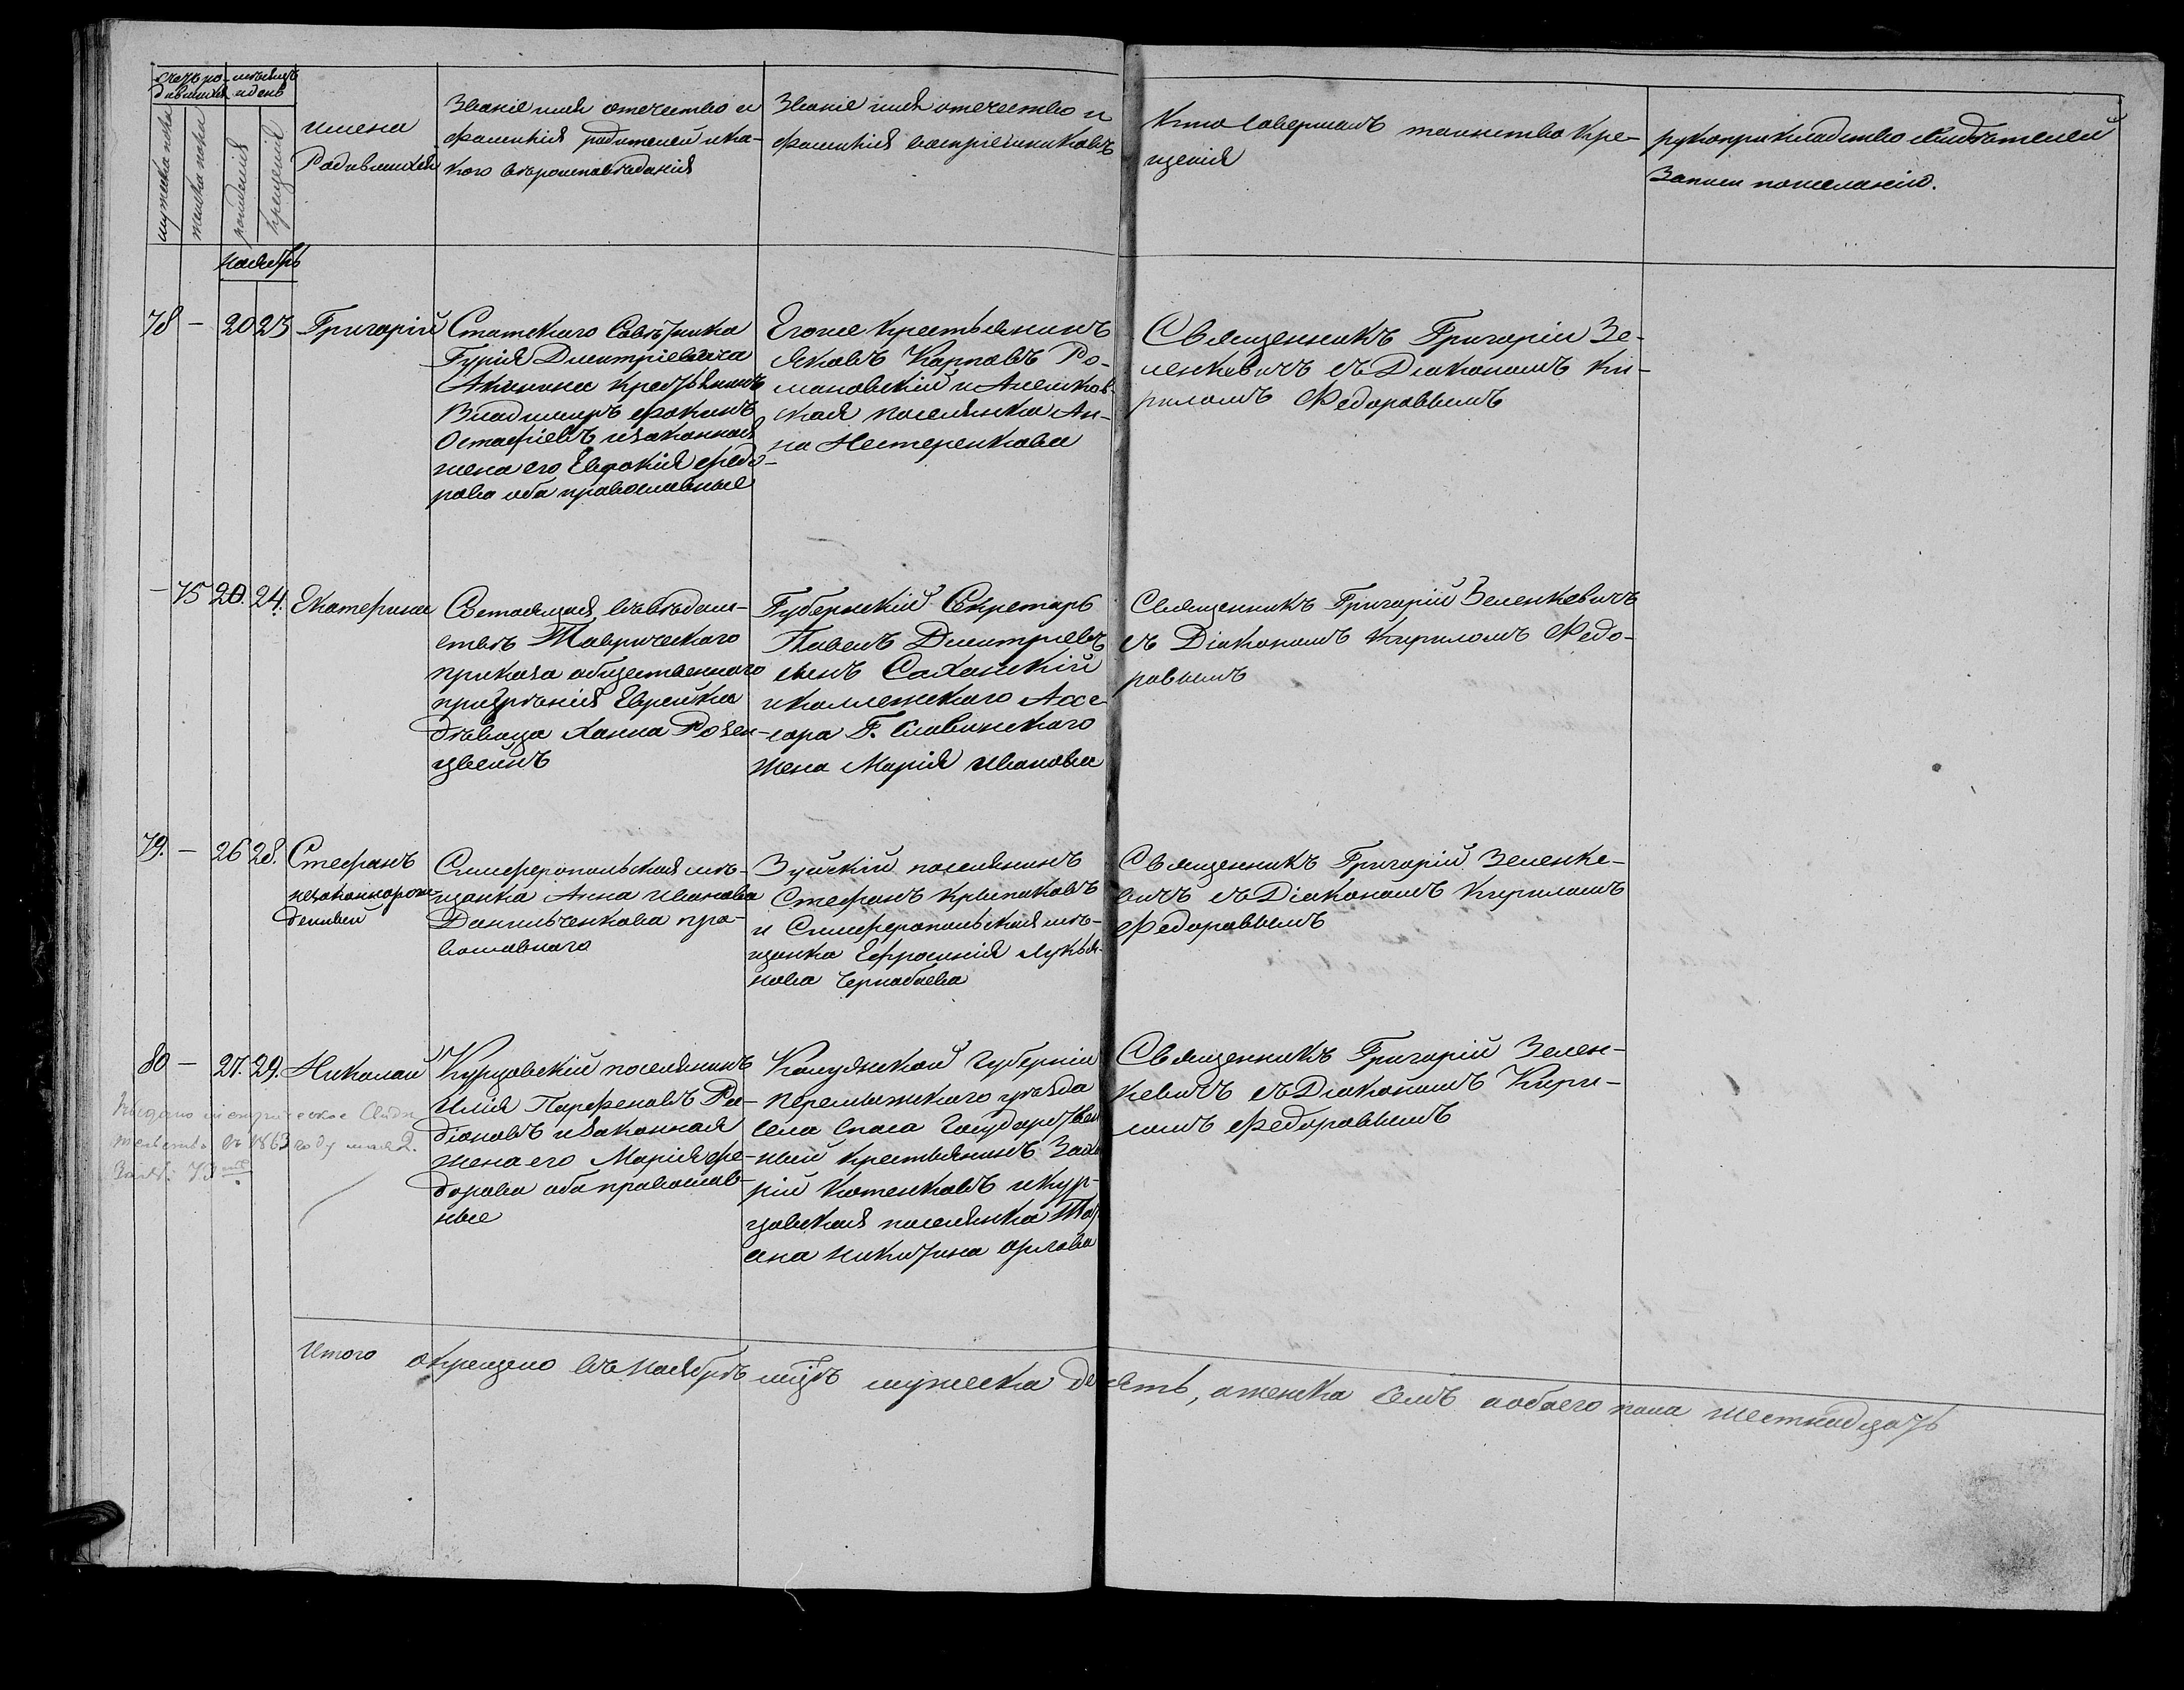 Счетъ ро-
дившихся
мѣсяцъ
и день
мужеска пола
женска пола
рожденія
крещенія
имена
Родившихся
Званіе имя отечество и
фамилія родителей и ка-
кого вѣроисповѣданія
Званіе имя отечество и
фамилія воспріемниковъ
Кто совершалъ таинство кре-
щенія
рукоприкладство свидѣтелей
записи по желанію.
Ноябрь
78 — 20 23 Григорій
Статскаго Совѣтника
Гурія Дмитріевича
крестьянинъ
Владимиръ Фокинъ
Остафіевъ и законная
жена его Евдокія Федо-
рова оба православные
Егоже крестьянинъ
Яковъ Карповъ Ро-
мановскій и
ская поселянка Ан-
на Нестеренкова
Священникъ Григорій Зе-
ленкевичъ съ Діакономъ Ки-
риломъ Федоровымъ
— 75 20. 24. Екатерина
Состоящая въ вѣдом-
ствѣ Таврическаго
приказа общественного
призрѣнія Еврейка
дѣвица Ханна Розен-
цвейнъ
Губернскій Секретарь
Павелъ Дмитріевъ
сынъ Саханскій
и коллежскаго Ассе-
сора Г. Славинскаго
жена Марія Иванова
Священникъ Григорій Зеленкевичъ
съ Діакономъ Кириломъ Федо-
ровымъ
79. — 26 28. Стефанъ
незаконнорож-
денный
Симферопольская мѣ-
щанка Анна Иванова
Данильченкова пра-
вославного
Зуйскій поселянинъ
Стефанъ Крыпаковъ
и Симферопольская мѣ-
щанка Ефросинія Лукья-
нова Чернобаева
Священникъ Григорій Зеленке-
вичъ съ Діакономъ Кириломъ
Федоровымъ
80 — 27. 29. Николай
Курцовскій поселянинъ
Илія Парфеновъ Ро-
діоновъ и законная
жена его Марія Фе-
дорова оба православ-
ные
Калужской Губерніи
Перемышскаго уѣзда
села Спаса Государствен
ный крестьянинъ Заха
рій Котенковъ и кур-
цовская поселянка Тат
яна Никитина Орлова
Священникъ Григорій Зелен-
кевичъ съ Діакономъ Кири-
ломъ Федоровымъ
Выдано метрическое Свидѣ
тельство въ 1863 году мая 2.
За № 73
Итого окрещено въ Ноябрѣ мцѣ мужеска девять, а женска семь а обоего пола шестнадцать